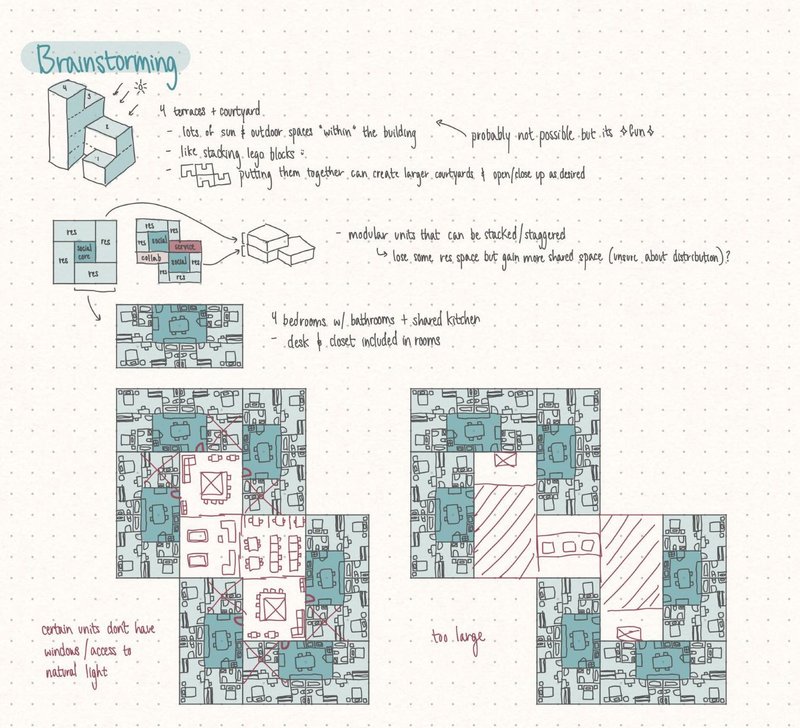 Brainstorming
4 3 2 1
4 terraces + courtyard
- lots of sun & outdoor spaces "within" the building
probably not possible but its ✧fun✧
- like stacking lego blocks
- putting them together can create larger courtyards & open/close up as desired
res
res
social core
res
res
res
social
res
service
collab
social
res
res
- modular units that can be stacked/staggered
↳ lose some res space but gain more shared space (unsure about distribution)?
4 bedrooms w/ bathrooms + shared kitchen
- desk & closet included in rooms
certain units don't have
windows/access to
natural light
too large